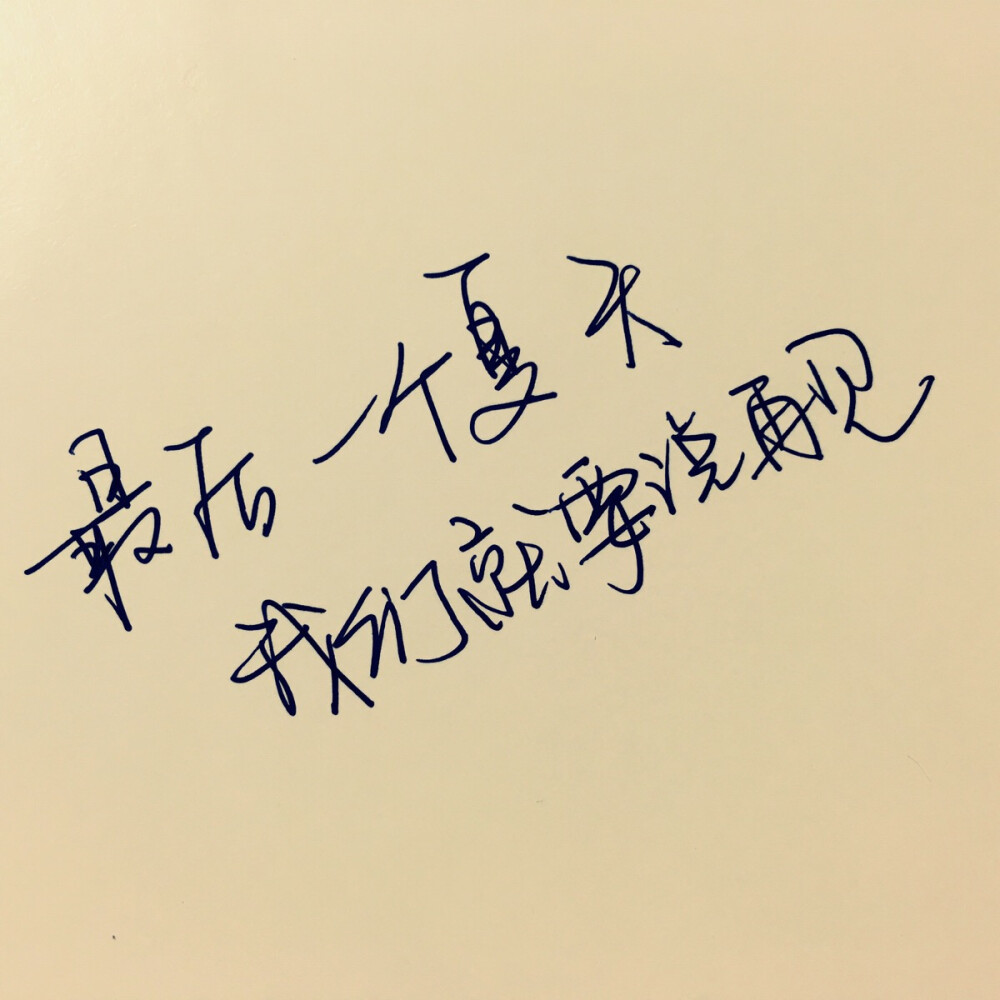 最后一个夏天
我们就要说再见